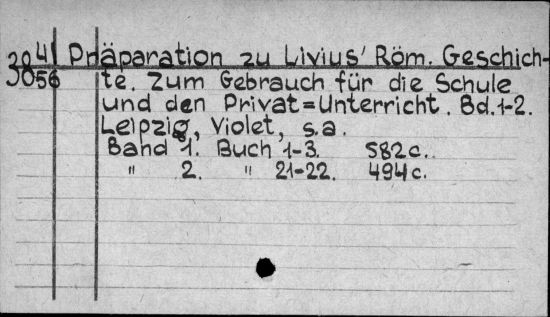 3841 Präparation zu Livius' Röm. Geschich-
3056 te. Zum Gebrauch für die Schule
und den Privat=Unterricht. Bd. 1-2.
Leipzig, Violet, s.a.
Band 1. Buch 1-3. 582 c.
" 2. " 21-22. 494 c.